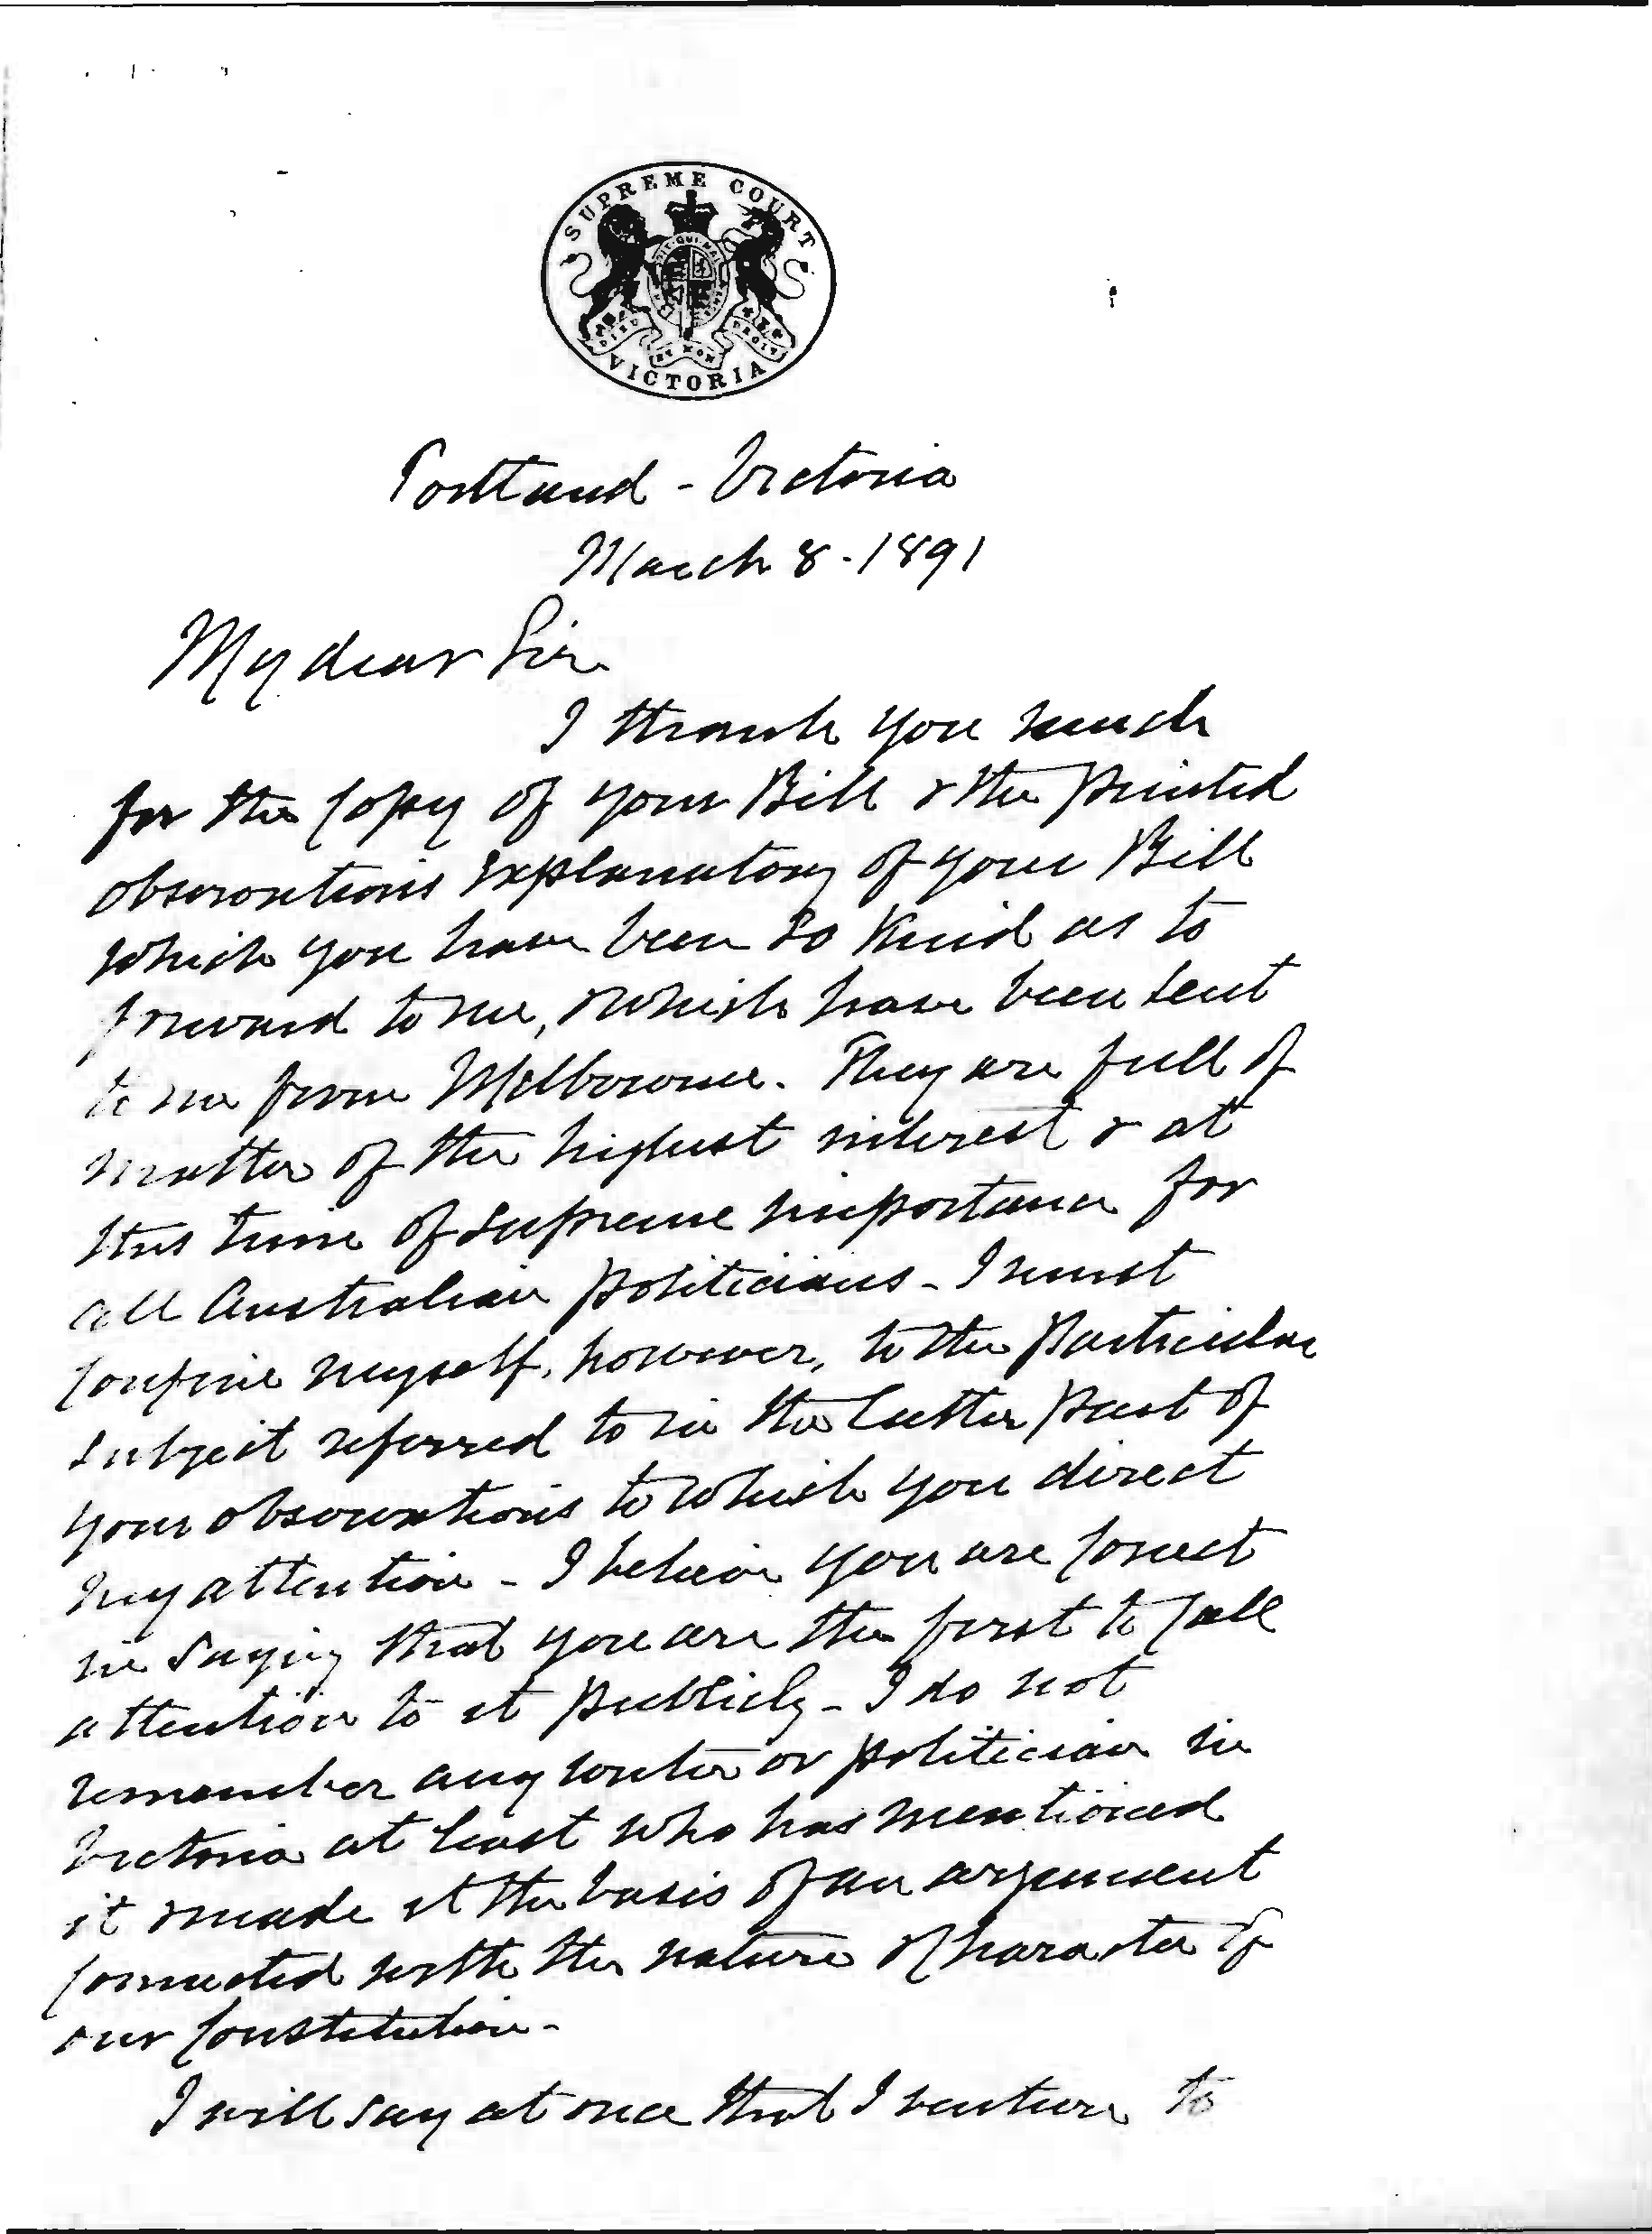 SUPREME COURT
VICTORIA
DIEU ET MON DROIT
Portland - Victoria
March 8 - 1891
My dear Sir
I thank you much
for the copy of your Bill & the printed
observations explanatory of your Bill
which you have been so kind as to
forward to me, & which have been sent
to me from Melbourne. They are full of
matter of the highest interest & at
this time of supreme importance for
all Australian politicians - I must
confine myself, however, to the particular
subject referred to in the latter part of
your observations to which you direct
my attention - I believe you are correct
in saying that you are the first to call
attention to it publicly - I do not
remember any writer or politician in
Victoria at least who has mentioned
it & made it the basis of an argument
connected with the nature & character of
our Constitution -
I will say at once that I venture to